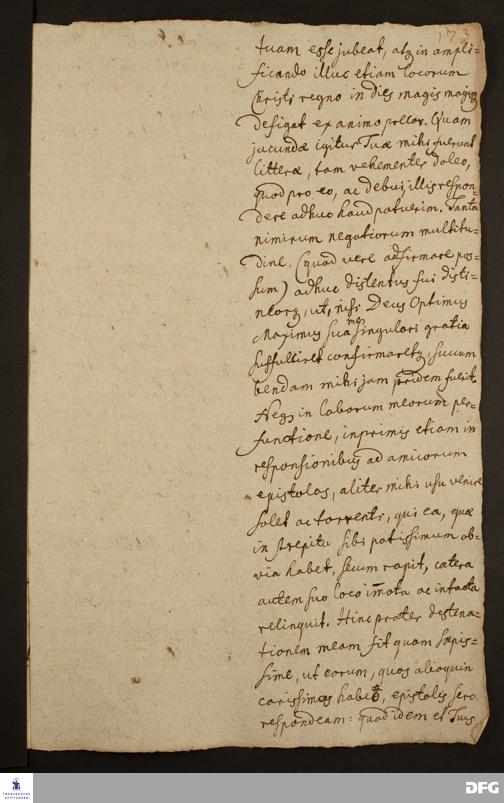 173
tuam esse jubeat, atq; in ampli=
ficando illuc etiam locorum
Christi regno in dies magis magisq;
defigat ex animo precor. Quam
jucundæ igitur Tuæ mihi fuerunt
litteræ, tam vehementer doleo,
quod pro eo, ac debui, illis respon=
dere adhuc haud potuerim. Tanta
nimirum negotiorum multitu=
dine, (quod vere adfirmare pos=
sum) adhuc distentus fui disti=
neorq;, ut, nisi Deus Optimus
Maximus sua me singulari gratia
suffulciret confirmaretq;, succum
bendam mihi jam pridem fuerit.
Neq; in laborum meorum per=
functione, inprimis etiam in
responsionibus ad amicorum
epistolas, aliter mihi usu venire
solet ac torrenti, qui ea, quæ
in strepitu sibi potissimum ob=
via habet, secum rapit, cætera
autem suo loco immota ac intacta
relinquit. Hinc præter destina=
tionem meam fit quam sæpis=
sime, ut eorum, quos alioquin
carissimos, epistolis sero
respondeam: quod idem et Tuis
FRANCKESCHE STIFTUNGEN
DFG